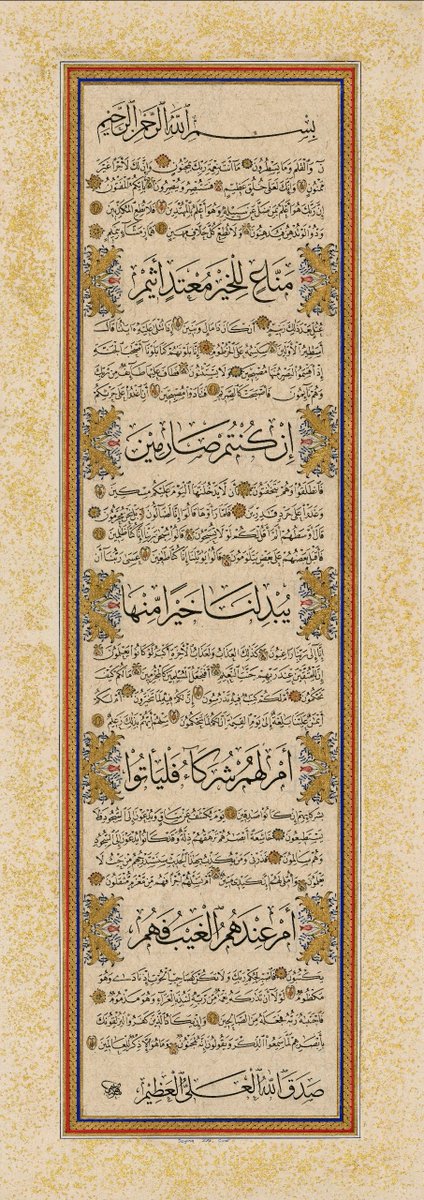 بسم الله الرحمن الرحيم
ن والقلم وما يسطرون ما أنت بنعمة ربك بمجنون وإن لك لأجرا غير
ممنون وإنك لعلى خلق عظيم فستبصر ويبصرون بأيكم المفتون
إن ربك هو أعلم بمن ضل عن سبيله وهو أعلم بالمهتدين فلا تطع المكذبين
ودوا لو تدهن فيدهنون ولا تطع كل حلاف مهين هماز مشاء بنميم
مناع للخير معتد أثيم
عتل بعد ذلك زنيم أن كان ذا مال وبنين إذا تتلى عليه آياتنا قال
أساطير الأولين سنسمه على الخرطوم إنا بلوناهم كما بلونا أصحاب الجنة
إذ أقسموا ليصرمنها مصبحين ولا يستثنون فطاف عليها طائف من ربك
وهم نائمون فأصبحت كالصريم فتنادوا مصبحين أن اغدوا على حرثكم
إن كنتم صارمين
فانطلقوا وهم يتخافتون أن لا يدخلنها اليوم عليكم مسكين
وغدوا على حرد قادرين فلما رأوها قالوا إنا لضالون بل نحن محرومون
قال أوسطهم ألم أقل لكم لولا تسبحون قالوا سبحان ربنا إنا كنا ظالمين
فأقبل بعضهم على بعض يتلاومون قالوا يا ويلنا إنا كنا طاغين عسى ربنا أن
يبدلنا خيرا منها
إنا إلى ربنا راغبون كذلك العذاب ولعذاب الآخرة أكبر لو كانوا يعلمون
إن للمتقين عند ربهم جنات النعيم أفنجعل المسلمين كالمجرمين ما لكم كيف
تحكمون أم لكم كتاب فيه تدرسون إن لكم فيه لما تخيرون أم لكم
أيمان علينا بالغة إلى يوم القيامة إن لكم لما تحكمون سلهم أيهم بذلك زعيم
أم لهم شركاء فليأتوا
بشركائهم إن كانوا صادقين يوم يكشف عن ساق ويدعون إلى السجود فلا
يستطيعون خاشعة أبصارهم ترهقهم ذلة وقد كانوا يدعون إلى السجود
وهم سالمون فذرني ومن يكذب بهذا الحديث سنستدرجهم من حيث لا
يعلمون وأملي لهم إن كيدي متين أم تسألهم أجرا فهم من مغرم مثقلون
أم عندهم الغيب فهم
يكتبون فاصبر لحكم ربك ولا تكن كصاحب الحوت إذ نادى وهو
مكظوم لولا أن تداركه نعمة من ربه لنبذ بالعراء وهو مذموم
فاجتباه ربه فجعله من الصالحين وإن يكاد الذين كفروا ليزلقونك
بأبصارهم لما سمعوا الذكر ويقولون إنه لمجنون وما هو إلا ذكر للعالمين
صدق الله العلي العظيم